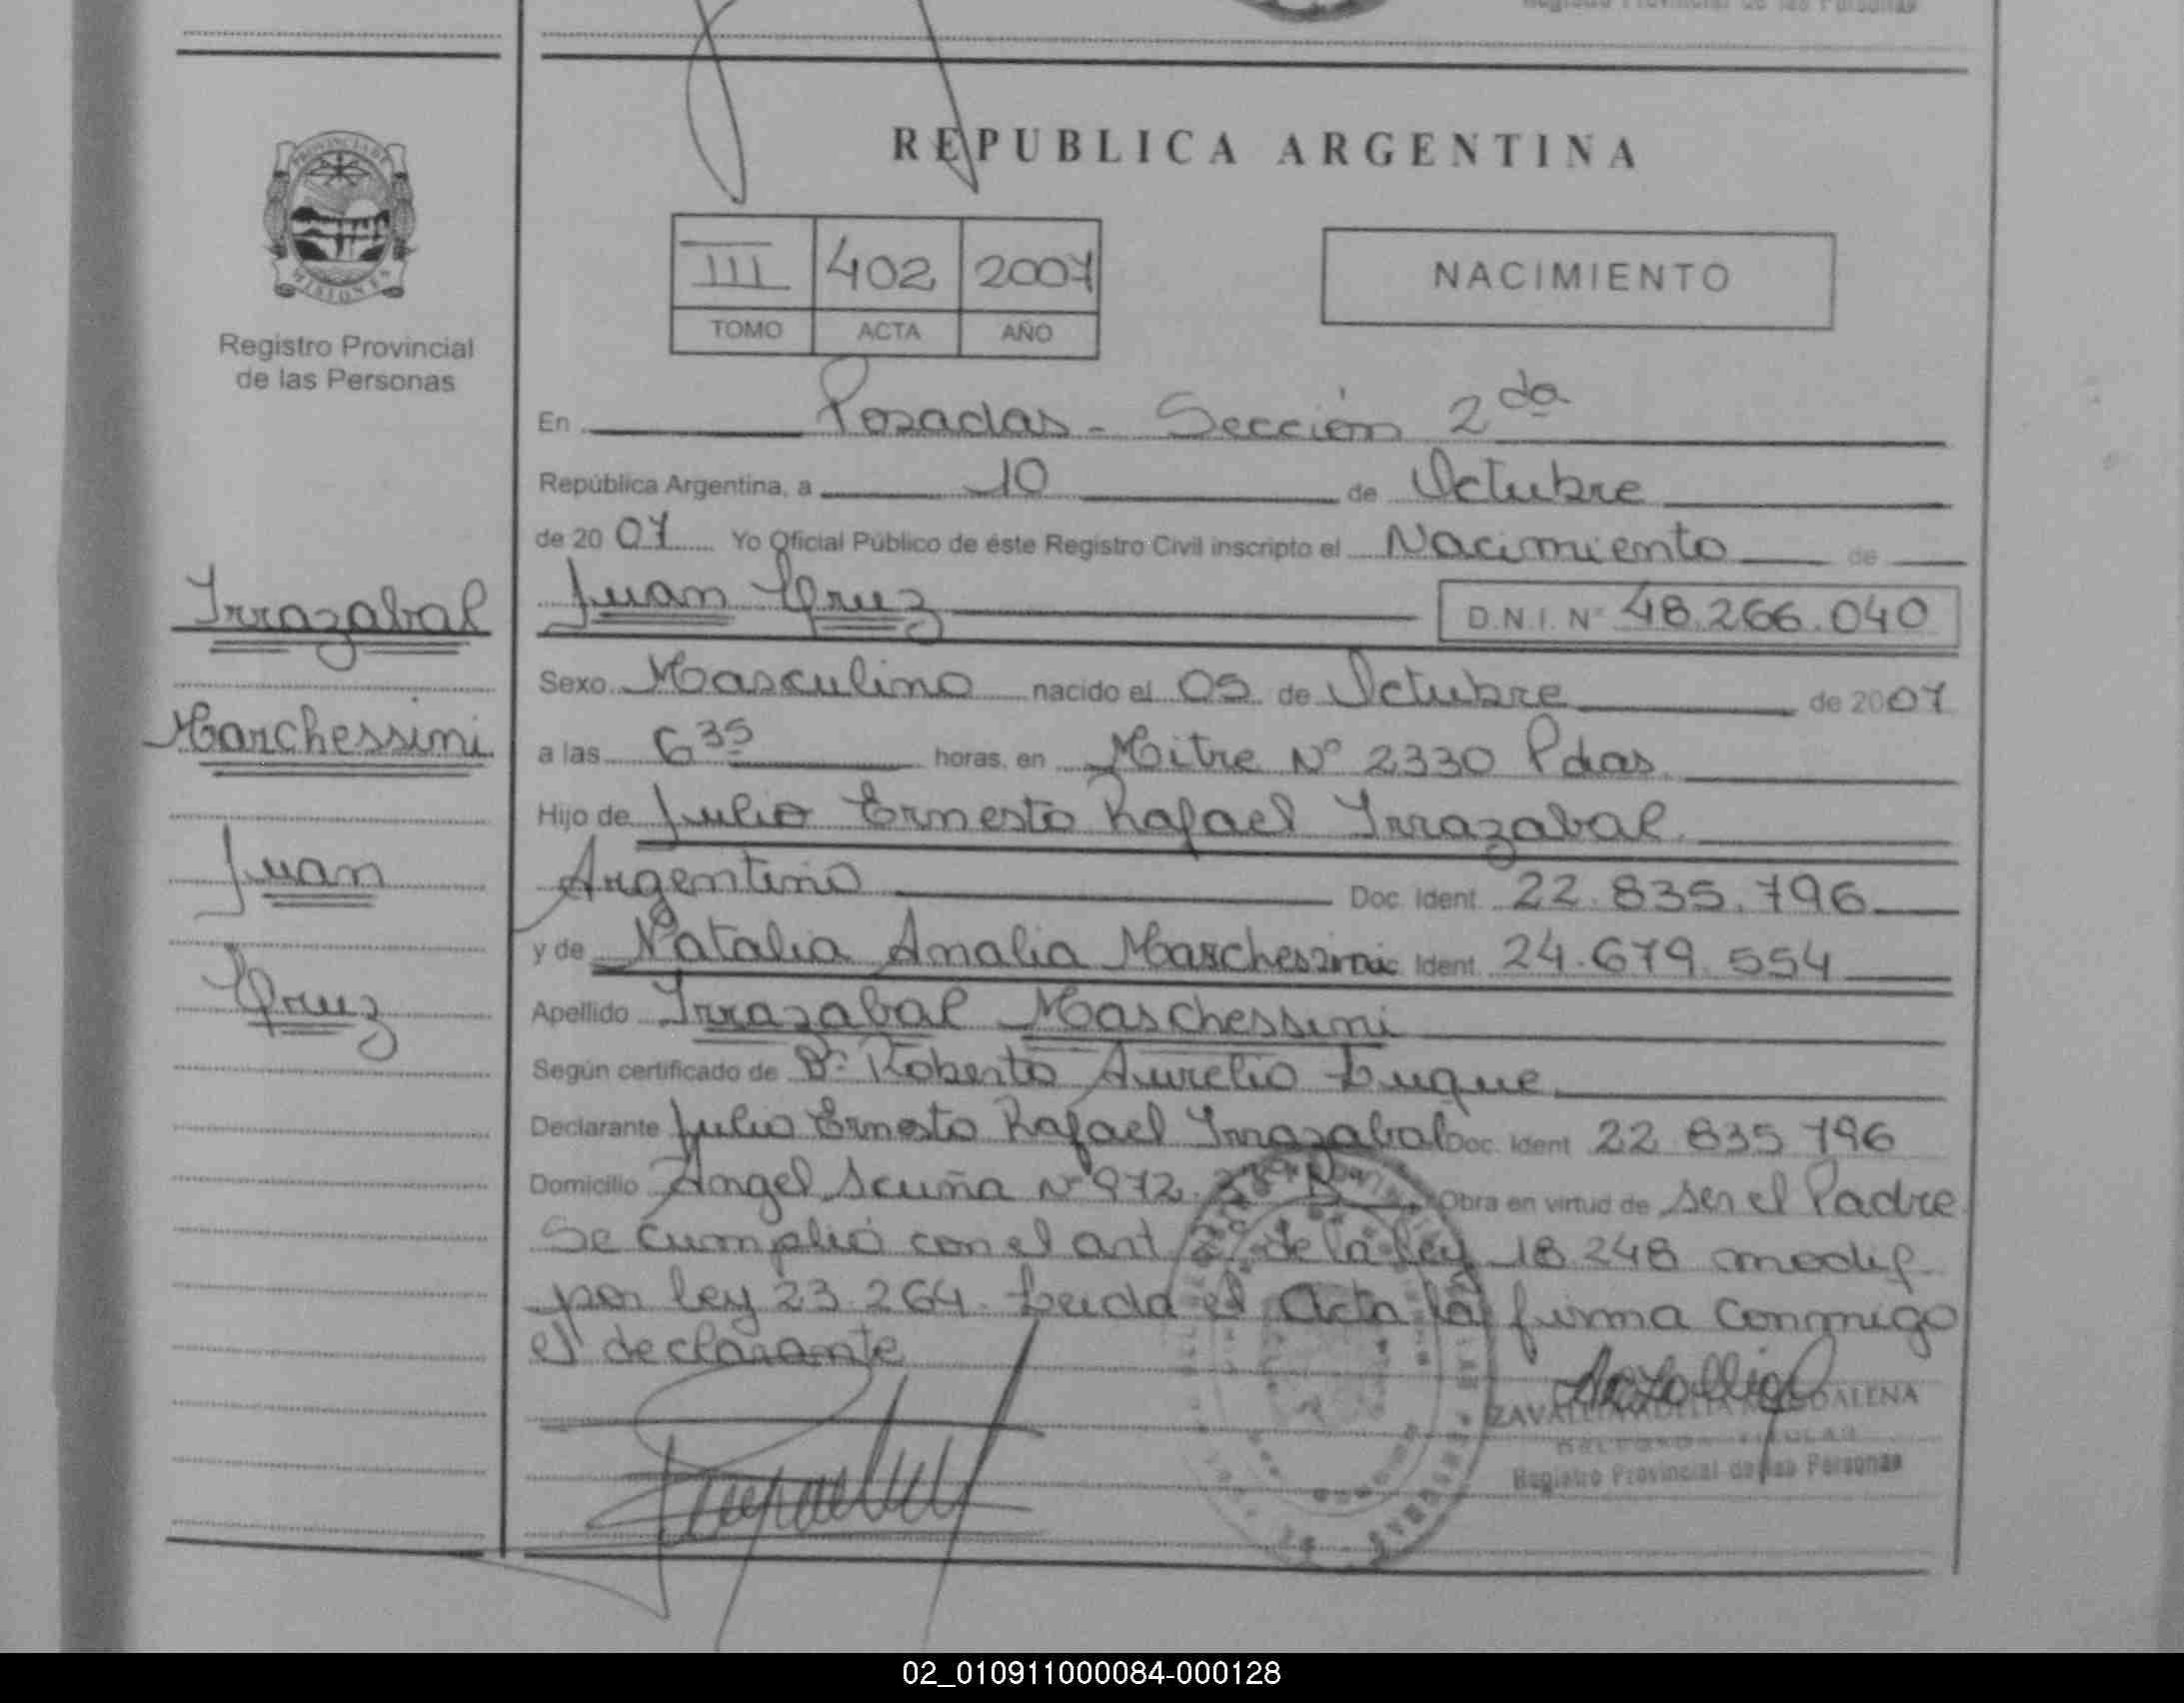 Registro Provincial de las Personas
REPUBLICA ARGENTINA
PROVINCIA DE
MISIONES
Registro Provincial
de las Personas
III 402 2007
TOMO ACTA AÑO
NACIMIENTO
En Posadas - Sección 2da
República Argentina, a 10 de Octubre
de 2007 Yo Oficial Público de éste Registro Civil inscripto el Nacimiento de
Irrazabal
Juan Cruz D.N.I. Nº 48.266.040
Sexo Masculino nacido el 05 de Octubre de 2007
Marchessini
a las 6 35 horas, en Mitre Nº 2330 Pdas.
Hijo de Julio Ernesto Rafael Irrazabal.
Juan
Argentino Doc. Ident. 22.835.796
y de Natalia Amalia Marchessini Ident. 24.679.554
Cruz
Apellido Irrazabal Marchessini
Según certificado de Dr. Roberto Aurelio Luque
Declarante Julio Ernesto Rafael Irrazabal Doc. Ident 22 835 796
Domicilio Angel Acuña Nº 972. Obra en virtud de ser el Padre
Se cumplió con el art 2º de la ley 18.248 modif
por ley 23.264. Leida el Acta la firma conmigo
el declarante
MAGDALENA
Registro Provincial de las Personas
02_010911000084-000128